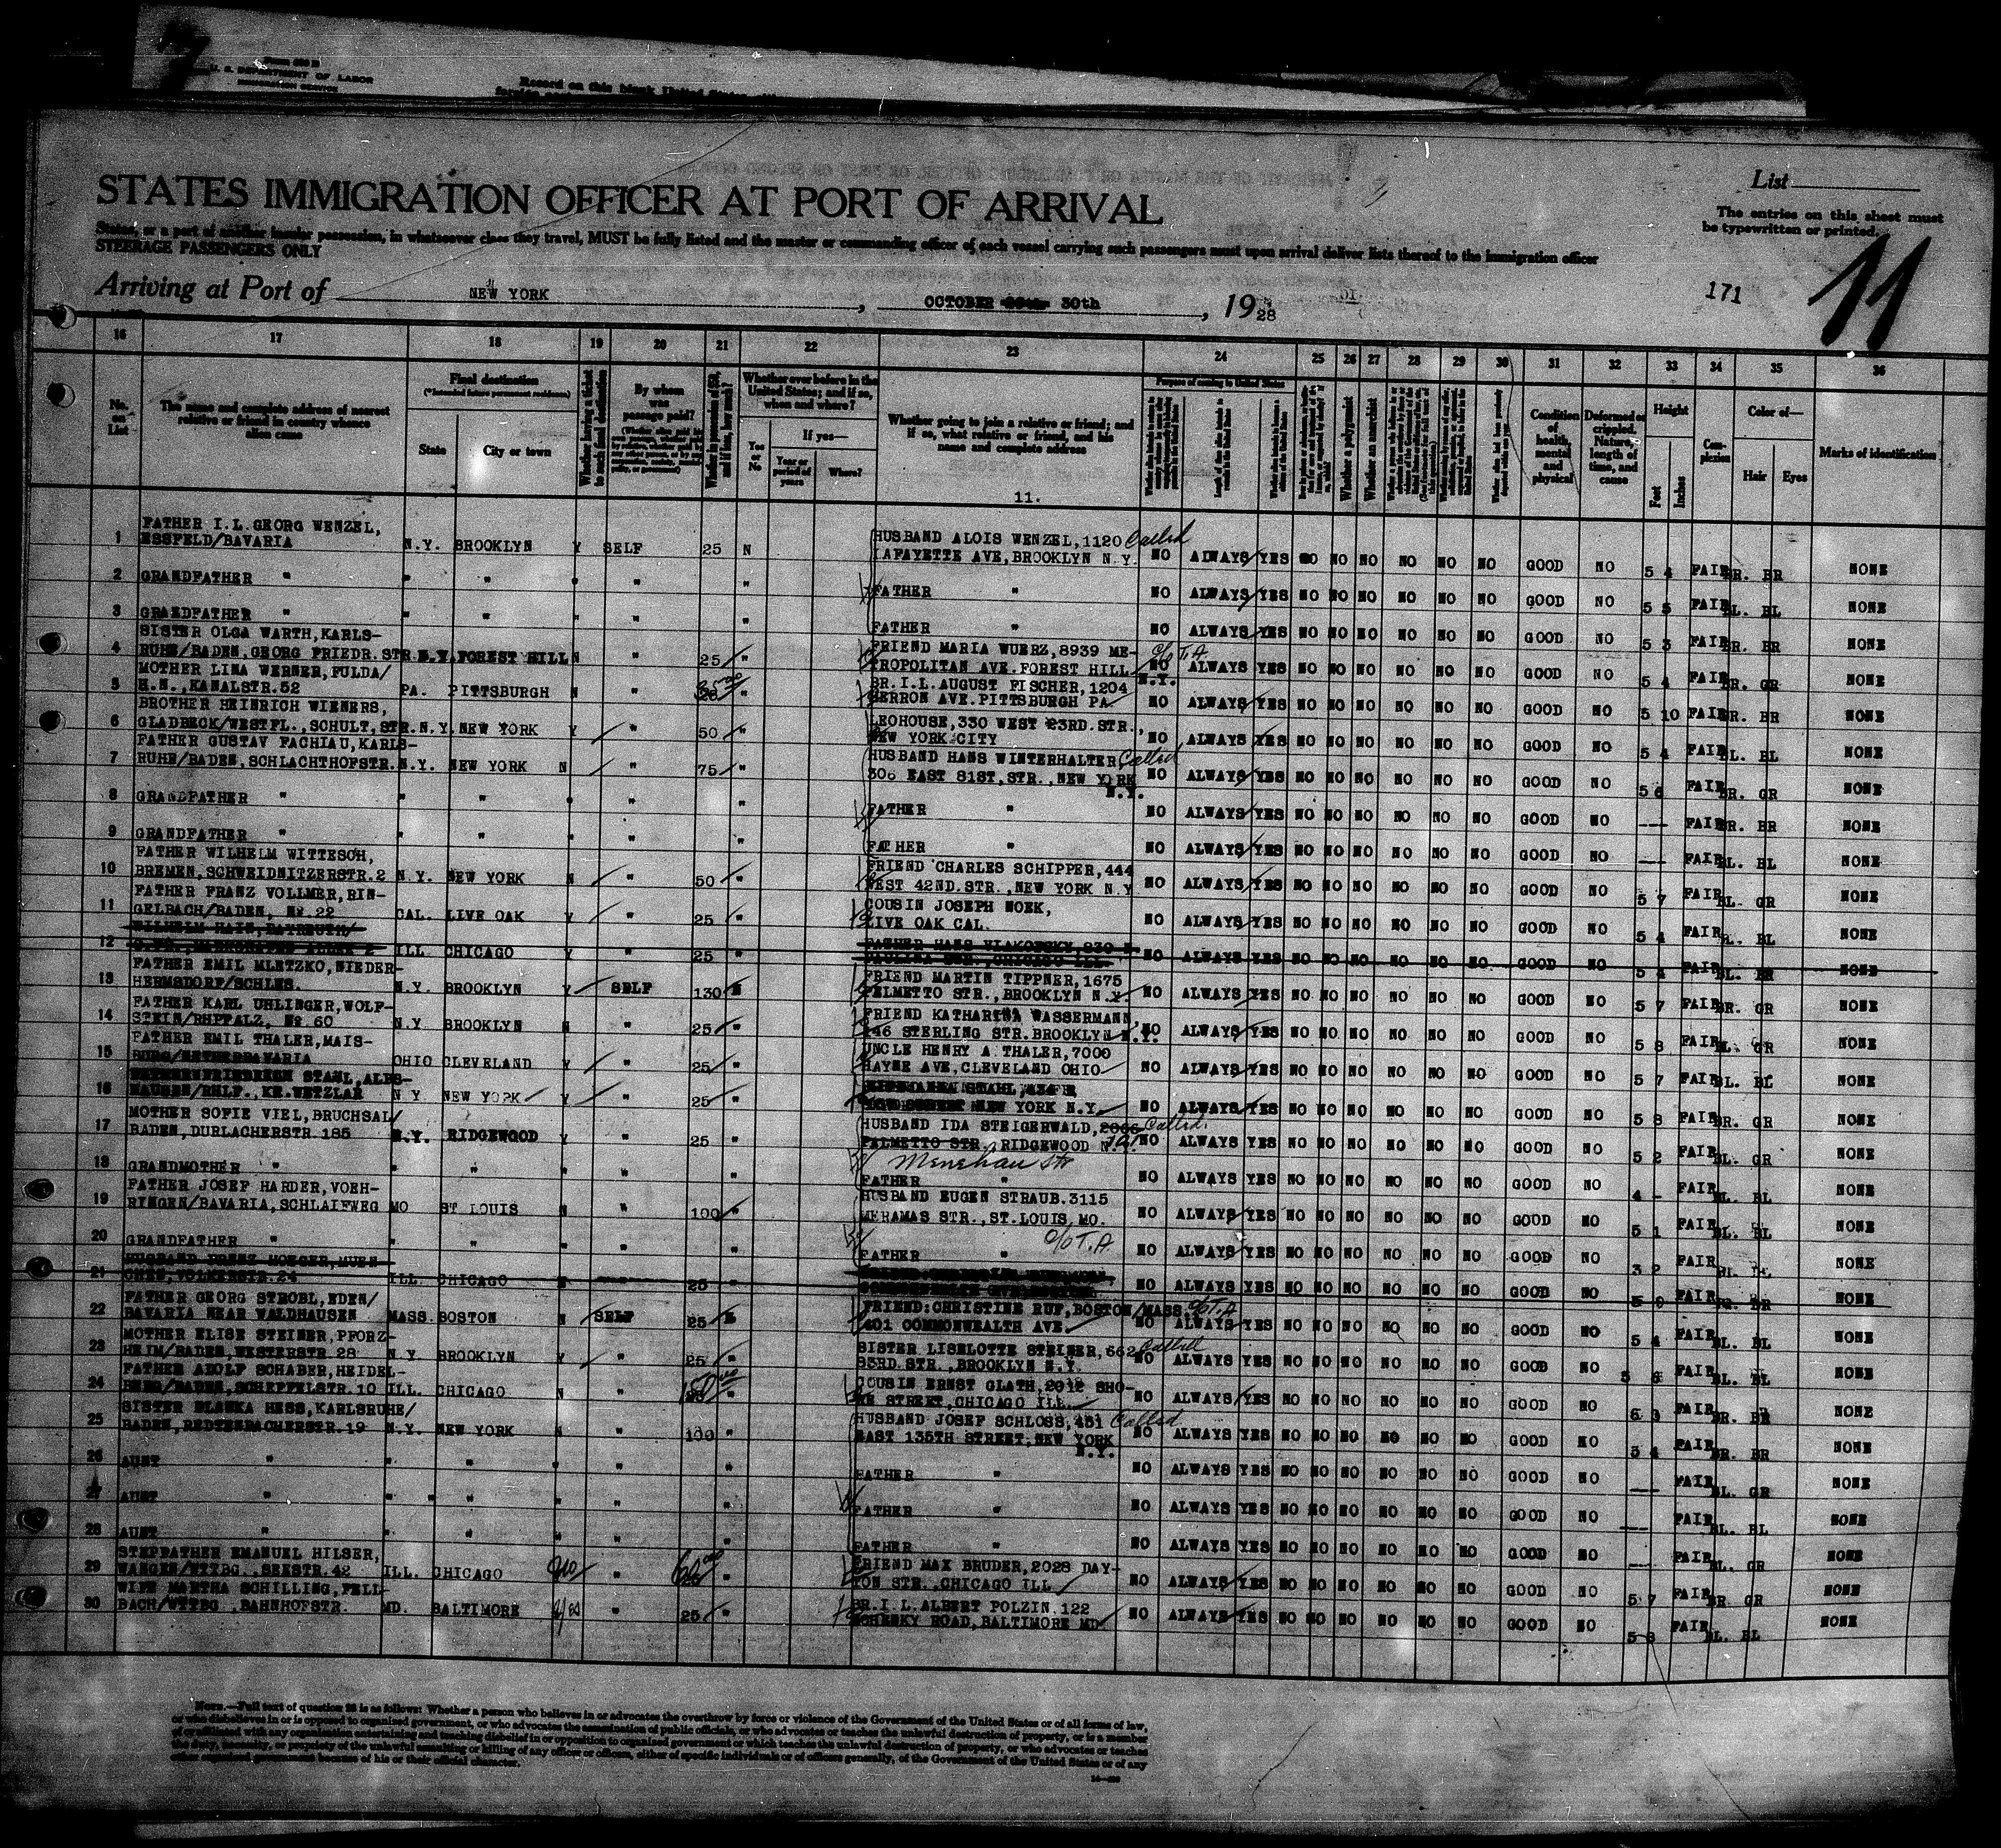 U. S. DEPARTMENT OF LABOR
Record on this blank United States
STATES IMMIGRATION OFFICER AT PORT OF ARRIVAL
List
States, or a part of another insular possession, in whatsoever class they travel, MUST be fully listed and the master or commanding officer of each vessel carrying such passengers must upon arrival deliver lists thereof to the immigration officer
STEERAGE PASSENGERS ONLY
The entries on this sheet must
be typewritten or printed.
11
171
Arriving at Port of NEW YORK , OCTOBER 30th , 1928
16 17 18 19 20 21 22 23 24 25 26 27 28 29 30 31 32 33 34 35 36
No. on List
The name and complete address of nearest relative or friend in country whence alien came
Final destination
(*Intended future permanent residence)
State
City or town
Whether having a ticket to such final destination
By whom was passage paid?
Whether ever before in the United States; and if so, when and where?
Yes or No
If yes—
Year or period of years
Where?
Whether going to join a relative or friend; and if so, what relative or friend, and his name and complete address
11.
Purpose of coming to United States
Whether a polygamist
Whether an anarchist
Condition of health, mental and physical
Deformed or crippled. Nature, length of time, and cause
Height
Feet
Inches
Complexion
Color of—
Hair
Eyes
Marks of identification
1 FATHER I.L.GEORG WENZEL, ESSFELD/BAVARIA N.Y. BROOKLYN Y SELF 25 N HUSBAND ALOIS WENZEL,1120 Called LAFAYETTE AVE,BROOKLYN N.Y. NO ALWAYS YES NO NO NO NO NO NO GOOD NO 5 4 FAIR BR. BR NONE
2 GRANDFATHER " " " " " " FATHER " NO ALWAYS YES NO NO NO NO NO NO GOOD NO 5 5 FAIR BL. BL NONE
3 GRANDFATHER " " " " " " FATHER " NO ALWAYS YES NO NO NO NO NO NO GOOD NO 5 3 FAIR BR. BR NONE
4 SISTER OLGA WARTH,KARLS- RUHE/BADEN,GEORG FRIEDR.STR. N.Y. FOREST HILL N " 25 " FRIEND MARIA WUERZ,8939 ME- c/o T.A TROPOLITAN AVE.FOREST HILL N.Y. NO ALWAYS YES NO NO NO NO NO NO GOOD NO 5 4 FAIR BR. GR NONE
5 MOTHER LINA WERNER,FULDA/ H.N.,KANALSTR.52 PA. PITTSBURGH N " " BR.I.L.AUGUST FISCHER,1204 HERRON AVE.PITTSBURGH PA NO ALWAYS YES NO NO NO NO NO NO GOOD NO 5 10 FAIR BR. BR NONE
6 BROTHER HEINRICH WIENERS, GLADBECK/WESTFL.,SCHULT,STR. N.Y. NEW YORK Y " 50 " LEOHOUSE,330 WEST 23RD.STR., NEW YORK CITY NO ALWAYS YES NO NO NO NO NO NO GOOD NO 5 4 FAIR BL. BL NONE
7 FATHER GUSTAV FACHIAU,KARLS- RUHE/BADEN,SCHLACHTHOFSTR. N.Y. NEW YORK N " 75 " HUSBAND HANS WINTERHALTER, Called 306 EAST 81ST,STR.,NEW YORK N.Y. NO ALWAYS YES NO NO NO NO NO NO GOOD NO 5 6 FAIR BR. GR NONE
8 GRANDFATHER " " " " " " FATHER " NO ALWAYS YES NO NO NO NO NO NO GOOD NO -- FAIR BR. BR NONE
9 GRANDFATHER " " " " " FATHER " NO ALWAYS YES NO NO NO NO NO NO GOOD NO -- FAIR BL. BL NONE
10 FATHER WILHELM WITTESCH, BREMEN,SCHWEIDNITZERSTR.2 N.Y. NEW YORK N " 50 " FRIEND CHARLES SCHIPPER,444 WEST 42ND.STR.,NEW YORK N.Y NO ALWAYS YES NO NO NO NO NO NO GOOD NO 5 7 FAIR BL. GR NONE
11 FATHER FRANZ VOLLMER,RIN- GELBACH/BADEN, No.22 CAL. LIVE OAK Y " 25 " COUSIN JOSEPH NOEK, LIVE OAK CAL. NO ALWAYS YES NO NO NO NO NO NO GOOD NO 5 4 FAIR BL. BL NONE
12 ILL. CHICAGO Y " 25 " NO ALWAYS YES NO NO NO NO NO NO GOOD NO 5 4 FAIR BL. BR NONE
13 FATHER EMIL MLETZKO,NIEDER- HERMSDORF/SCHLES. N.Y. BROOKLYN Y SELF 130 N FRIEND MARTIN TIPPNER,1675 PALMETTO STR.,BROOKLYN N.Y NO ALWAYS YES NO NO NO NO NO NO GOOD NO 5 7 FAIR BR. GR NONE
14 FATHER KARL UHLINGER,WOLF- STEIN/RHPFALZ, No.60 N.Y BROOKLYN N " 25 " FRIEND KATHARINA WASSERMANN, 146 STERLING STR.BROOKLYN N.Y. NO ALWAYS YES NO NO NO NO NO NO GOOD NO 5 8 FAIR BL. GR NONE
15 FATHER EMIL THALER,MAIS- OHIO CLEVELAND Y " 25 " UNCLE HENRY A.THALER,7000 HAYNE AVE,CLEVELAND OHIO NO ALWAYS YES NO NO NO NO NO NO GOOD NO 5 7 FAIR BL. BL NONE
16 STAHL,ALBS- HAUSEN/RHLP., KR.WETZLAR N Y NEW YORK Y " 25 " NEW YORK N.Y. NO ALWAYS YES NO NO NO NO NO NO GOOD NO 5 8 FAIR BR. GR NONE
17 MOTHER SOFIE VIEL,BRUCHSAL/ BADEN,DURLACHERSTR.185 N.Y. RIDGEWOOD Y " 25 " HUSBAND IDA STEIGERWALD, Called. PALMETTO STR.,RIDGEWOOD N.Y. NO ALWAYS YES NO NO NO NO NO NO GOOD NO 5 2 FAIR BL. GR NONE
Menehan Str
18 GRANDMOTHER " " " " " " FATHER " NO ALWAYS YES NO NO NO NO NO NO GOOD NO 4 - FAIR BL. BL NONE
19 FATHER JOSEF HARDER,VOEH- RINGEN/BAVARIA,SCHLAIFWEG MO ST LOUIS N " 100 " HUSBAND EUGEN STRAUB.3115 MERAMAS STR.,ST.LOUIS MO. NO ALWAYS YES NO NO NO NO NO NO GOOD NO 5 1 FAIR BL. BL NONE
c/o T.A
20 GRANDFATHER " " " " " " FATHER " NO ALWAYS YES NO NO NO NO NO NO GOOD NO 3 2 FAIR BL. BL NONE
21 ILL. CHICAGO N 25 " NO ALWAYS YES NO NO NO NO NO NO GOOD NO FAIR BR. BR NONE
22 FATHER GEORG STROBL,EDEN/ BAVARIA NEAR WALDHAUSEN MASS. BOSTON N SELF 25 N FRIEND:CHRISTINE RUF,BOSTON/MASS. c/o T.A 401 COMMONWEALTH AVE. NO ALWAYS YES NO NO NO NO NO NO GOOD NO 5 4 FAIR BL. BL NONE
23 MOTHER ELISE STEINER,PFORZ- HEIM/BADEN,WESTERSTR.28 N.Y. BROOKLYN Y " 25 " SISTER LISELOTTE STEINER,662 Called 83RD.STR.,BROOKLYN N.Y. NO ALWAYS YES NO NO NO NO NO NO GOOD NO 5 6 FAIR BL. BL NONE
24 FATHER ADOLF SCHABER,HEIDEL- BERG/BADEN,SCHEFFELSTR.10 ILL. CHICAGO N " " COUSIN ERNST GLATH,2012 SHO- RE STREET,CHICAGO ILL. NO ALWAYS YES NO NO NO NO NO NO GOOD NO 5 3 FAIR BR. BR NONE
25 SISTER BLANKA HESS,KARLSRUHE/ BADEN,REDTENBACHERSTR.19 N.Y. NEW YORK N " 100 " HUSBAND JOSEF SCHLOSS,451 Called EAST 135TH STREET,NEW YORK N.Y. NO ALWAYS YES NO NO NO NO NO NO GOOD NO 5 4 FAIR BR. BR NONE
26 AUNT " " " " " " FATHER " NO ALWAYS YES NO NO NO NO NO NO GOOD NO -- FAIR BL. GR NONE
27 AUNT " " " " " " FATHER " NO ALWAYS YES NO NO NO NO NO NO GOOD NO -- FAIR BL. BL NONE
28 AUNT " " " " " " FATHER " NO ALWAYS YES NO NO NO NO NO NO GOOD NO -- FAIR BL. GR NONE
29 STEPFATHER EMANUEL HILSER, WANGEN/WTTBG.,SEESTR.42 ILL. CHICAGO no " " FRIEND MAX BRUDER,2028 DAY- TON STR.,CHICAGO ILL NO ALWAYS YES NO NO NO NO NO NO GOOD NO 5 7 FAIR BR GR NONE
30 WIFE MARTHA SCHILLING,FELL- BACH/WTTBG.,BAHNHOFSTR. MD. BALTIMORE yes " 25 " BR.I.L.ALBERT POLZIN.122 ROAD,BALTIMORE MD NO ALWAYS YES NO NO NO NO NO NO GOOD NO 5 8 FAIR BL. BL NONE
NOTE.—Full text of question 28 is as follows: Whether a person who believes in or advocates the overthrow by force or violence of the Government of the United States or of all forms of law,
or who disbelieves in or is opposed to organized government, or who advocates the assassination of public officials, or who advocates or teaches the unlawful destruction of property, or is a member
of or affiliated with any organization entertaining and teaching disbelief in or opposition to organized government or which teaches the unlawful destruction of property, or who advocates or teaches
the duty, necessity, or propriety of the unlawful assaulting or killing of any officer or officers, either of specific individuals or of officers generally, of the Government of the United States or of any
other organized government because of his or their official character.